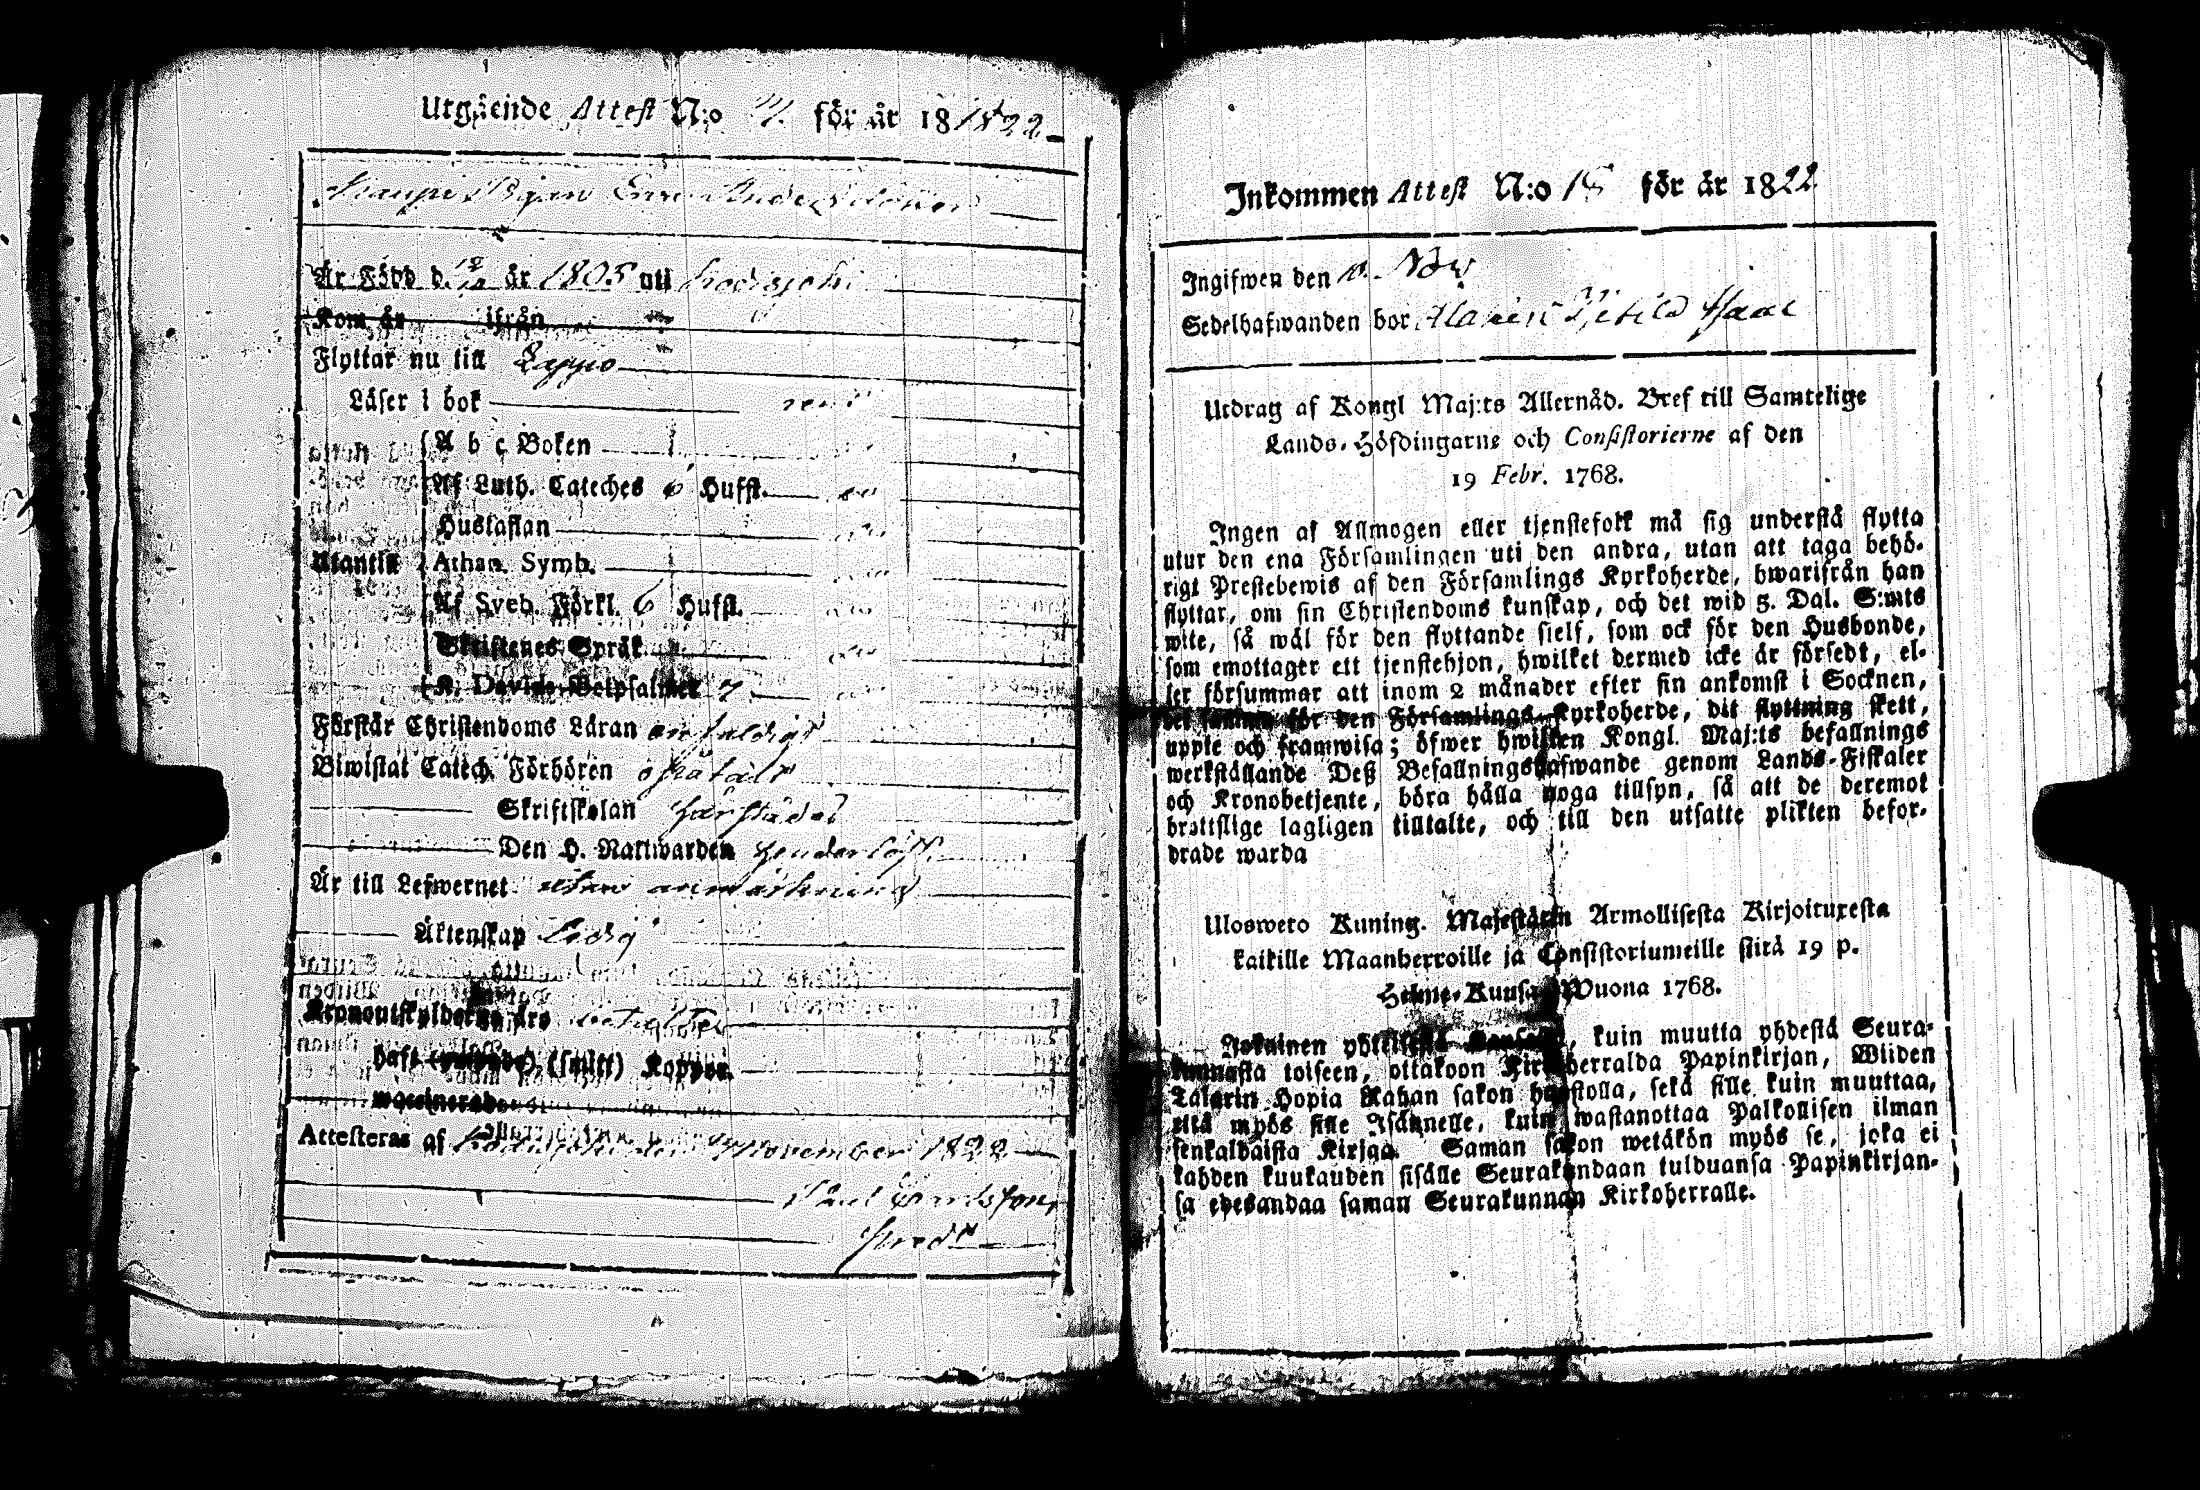 Utgående Attest N:o för år 18 1822
Är Född d. 12 år 1805 uti
Kom år ifrån
Flyttar nu till Lappo
Läser i bok
A b c Boken
Af Luth. Cateches 6 Hufst.
Hustaflan
Utantill Athan. Symb.
Af Sveb. Förkl. 6 Hufst.
Skriftenes Språk
K. Davids Botpsalmer 7
Förstår Christendoms Läran enfaldigt
Biwistat Catech. Förhören
Skriftskolan härstädes
Den H. Nattwarden
Är till Lefwernet utan anmärkning
Äktenskap Ledig
Kronoutskylderna äro
haft (smitt) Koppor.
waccinerad
Attesteras af November 1822
Inkommen Attest N:o 15 för år 1822
Ingifwen den 10. Nov
Sedelhafwanden bor
Utdrag af Kongl Maj:ts Allernåd. Bref till Samtelige
Lands-Höfdingarne och Consistorierne af den
19 Febr. 1768.
Ingen af Allmogen eller tjenstefolk må sig understå flytta
utur den ena Församlingen uti den andra, utan att taga behö-
rigt Prestebewis af den Församlings Kyrkoherde, hwarifrån han
flyttar, om sin Christendoms kunskap, och det wid 5. Dal. S:mts
wite, så wäl för den flyttande sielf, som ock för den Husbonde,
som emottager ett tjenstehjon, hwilket dermed icke är försedt, el-
ler försummar att inom 2 månader efter sin ankomst i Socknen,
det samma för den Församlings Kyrkoherde, dit flyttning skett,
uppte och framwisa; öfwer hwilken Kongl. Maj:ts befallnings
werkställande Deß Befallningshafwande genom Lands-Fiskaler
och Kronobetjente, böra hålla noga tillsyn, så att de deremot
brottslige lagligen tilltalte, och till den utsatte plikten befor-
drade warda
Ulosweto Kuning. Majestätin Armollisesta Kirjoituxesta
kaikille Maanherroille ja Consistoriumeille siitä 19 p.
Helme-Kuusa Wuona 1768.
Kukainen yhteisestä Kansasta, kuin muutta yhdestä Seura-
kunnasta toiseen, ottakoon Kirkoherralda Papinkirjan, Wiiden
Talarin Hopia Rahan sakon haastolla, sekä sille kuin muuttaa,
että myös sille Isännelle, kuin wastanottaa Palkollisen ilman
senkaldaista Kirjaa. Saman sakon wetäkön myös se, joka ei
kahden kuukauden sisälle Seurakundaan tulduansa Papinkirjan-
sa edesandaa saman Seurakunnan Kirkoherralle.